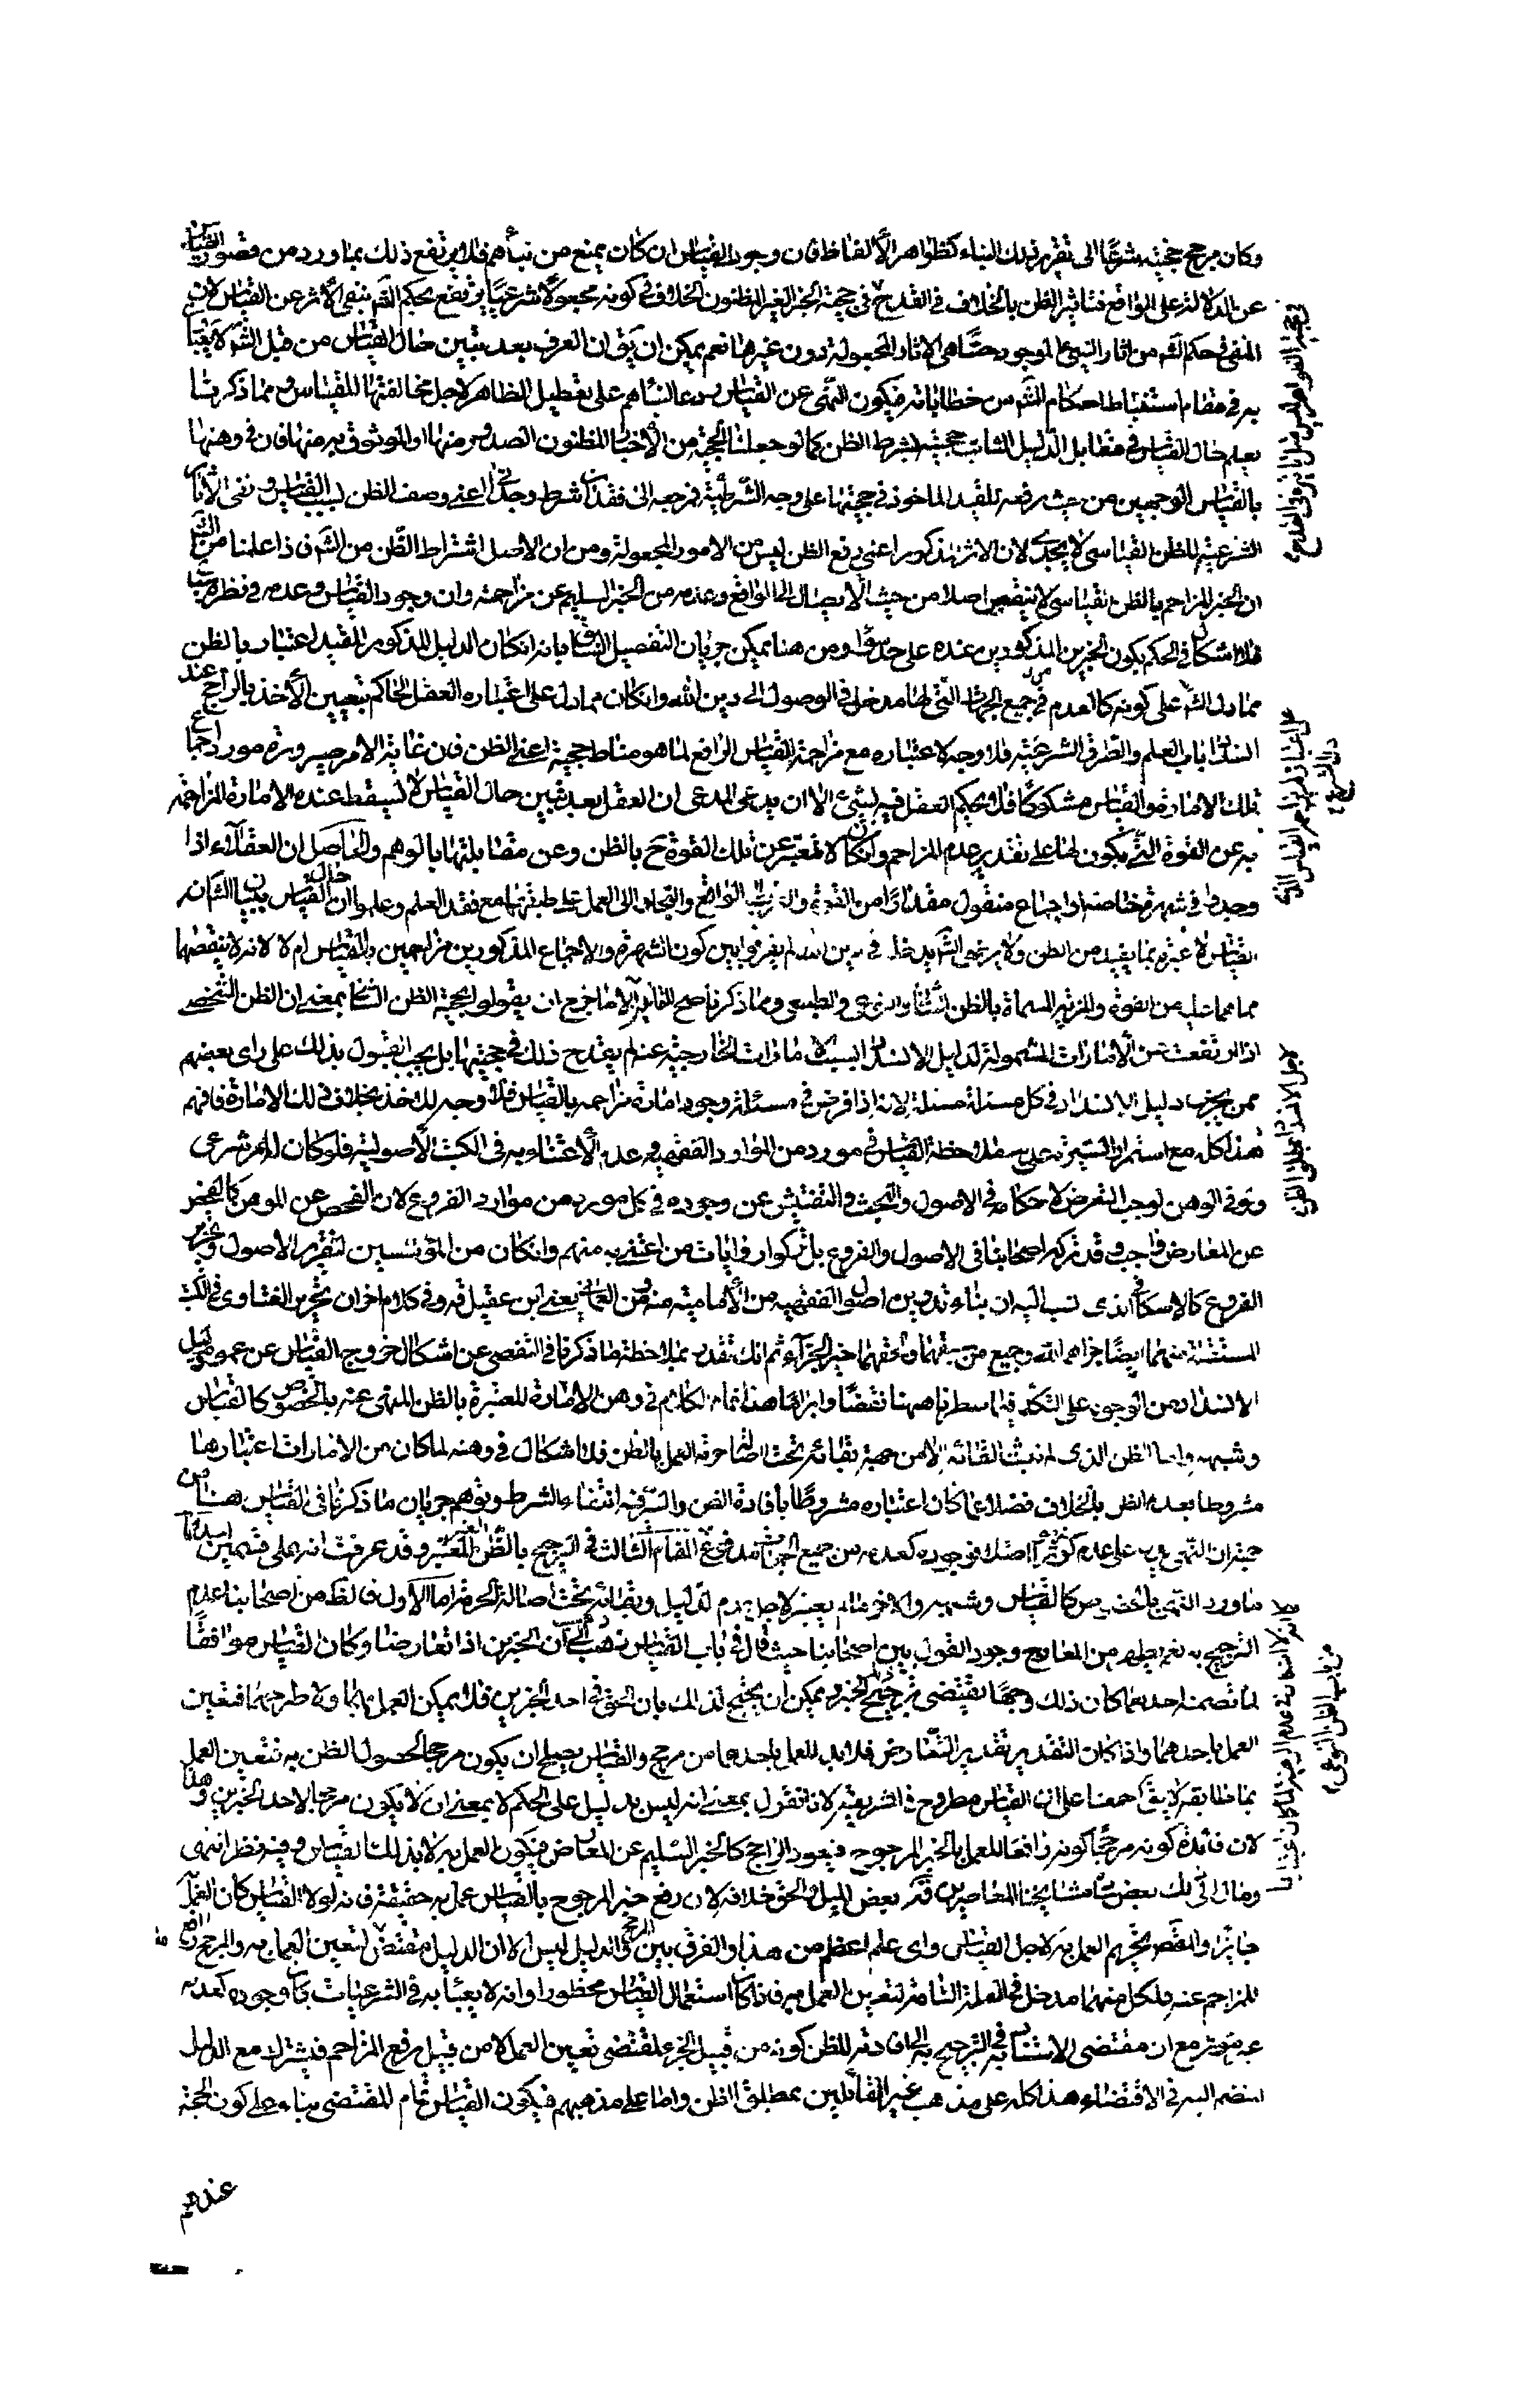 وكان مرجع حجيته شرعا الى تقرير ذلك البناء كظواهر الألفاظ فان وجود القياس ان كان يمنع من بنائهم فلا يرتفع ذلك بما ورد من قصور القياس
عن الدلالة على الواقع فتاثير الظن بالخلاف في القدح في حجية الخبر الغير المظنون الخلاف في كونه مجعولا شرعيا يرتفع بحكم الشر بنفي الأثر عن القياس لان
المنفي في حكم الشر من اثار الشيء الموجود حسا هي الاثار المجعولة دون غيرها نعم يمكن ان يق ان العرف بعد تبين حال القياس من قبل الشر لا يعبأ
به في مقام استنباط احكام الشر من خطاباته فيكون النهي عن القياس ردعا لبنائهم على تعطيل الظاهر لاجل مخالفتها للقياس ومما ذكرنا
يعلم حال القياس في مقابل الدليل الثابت حجيته بشرط الظن كما لو جعلنا الحجة من الأخبار المظنون الصدور منها او الموثوق به منها فان في وهنها
بالقياس الوجهين من حيث رفعه للقيد الماخوذ في حجيتها على وجه الشرطية فمرجعه الى فقدان شرط وجداني اعني وصف الظن بسبب القياس ونفي الآثار
الشرعية للظن القياسي لا يجدي لان الاثر المذكور اعني رفع الظن ليس من الامور المجعولة ومن ان الاصل اشتراط الظن من الشر فاذا علمنا من الشر
ان الخبر المزاحم بالظن القياسي لا ينقص اصلا من حيث الايصال الى الواقع وعدمه من الخبر السليم عن مزاحمته وان وجود القياس وعدمه في نظره سيان
فلا اشكال في الحكم بكون الخبرين المذكورين عنده على حد سواء ومن هنا يمكن جريان التفصيل السابق بانه ان كان الدليل المذكور المقيد اعتباره بالظن
مما دل الشر على كونه كالعدم في جميع الجهات التي لها مدخل في الوصول الى دين الله وان كان مما دل على اعتباره العقل الحاكم بتعيين الأخذ بالراجح عند
انسداد باب العلم والطرق الشرعية فلا وجه لاعتباره مع مزاحمة القياس الرافع لما هو مناط حجيته اعني الظن فان غاية الامر صيرورة مورد اجتماع
تلك الامارة والقياس مشكوكا فلا يحكم العقل فيه بشيء الا ان يدعي المدعي ان العقل بعد تبين حال القياس لا يسقط عنده الامارة المزاحمة
به عن القوة التي تكون لها على تقدير عدم المزاحم وان كان لا تعبر عن تلك القوة ح بالظن وعن مقابلتها بالوهم والحاصل ان العقلاء اذا
وجدوا في شهرة خاصة او اجماع منقول مقدارا من القوة والقرب الى الواقع والتجاؤا الى العمل على طبقهما مع فقد العلم وعلموا حال القياس ببيان الشر ان
القياس لا عبرة بما يفيده من الظن ولا يرضى الشر بدخله في دين الله لم يفرقوا بين كون الشهرة والاجماع المذكورين مزاحمين بالقياس ام لا لانه لا ينقصهما
عما هما عليه من القوة والمزية المسماة بالظن الشاني والنوعي والطبعي ومما ذكرنا صح للقائل الا ما خرج ان يقولوا بحجية الظن الشاني بمعنى ان الظن الشخصي
اذا ارتفعت عن الأمارات المشمولة لدليل الانسداد بسبب الامارات الخارجة عنه لم يقدح ذلك في حجيتها بل يجب القبول بذلك على راي بعضهم
ممن يجري دليل الانسداد في كل مسئلة مسئلة لانه اذا فرض في مسئلة وجود امارة مزاحمة بالقياس فلا وجه للاخذ بخلاف تلك الامارة فافهم
هذا كله مع استمرار السيرة على عدم ملاحظة القياس في مورد من الموارد الفقهية وعدم الاعتناء به في الكتب الأصولية فلو كان له اثر شرعي
ولو في الوهن لوجب التعرض لاحكامه في الاصول والبحث والتفتيش عن وجوده في كل مورد من موارد الفروع لان الفحص عن الموهن كالفحص
عن المعارض واجب وقد تركه اصحابنا في الاصول والفروع بل تركوا روايات من اعتنى به منهم وان كان من المؤسسين لتقرير الاصول وتحرير
الفروع كالاسكافي الذي نسب اليه ان بناء تدوين اصول الفقهية من الأمامية منه ومن العماني يعني ابن عقيل قده وفي كلام اخر ان تحرير الفتاوى في الكتب
المستقلة منهما ايضا جزاهم الله وجميع من سبقهما ولحقهما خير الجزاء ثم انك تقدر بملاحظة ما ذكرنا في التفصي عن اشكال خروج القياس عن عموم دليل
الانسداد من الوجوه على التكلم فيما سطرنا ههنا نقضا وابراما هذا تمام الكلام في وهن الامارة المعتبرة بالظن المنهي عنه بالخصوص كالقياس
وشبهه واما الظن الذي لم يثبت الغائه الا من جهة بقائه تحت اصالة حرمة العمل بالظن فلا اشكال في وهنه لما كان من الامارات اعتبارها
مشروطا بعدم الظن بالخلاف فضلا عما كان اعتباره مشروطا بافادة الظن والسر فيه انتفاء الشرط وتوهم جريان ما ذكرنا في القياس هنا من
جهة ان النهي يدل على عدم كونه مؤثرا اصلا فوجوده كعدمه من جميع الجهات مدفوع المقام الثالث في الترجيح بالظن الغير المعتبر وقد عرفت انه على قسمين احدهما
ما ورد النهي بالخصوص كالقياس وشبهه والاخر ما لم يعتبر لاجل عدم الدليل وبقائه تحت اصالة الحرمة اما الأول فالظ من اصحابنا عدم
الترجيح به نعم يظهر من المعارج وجود القول بين اصحابنا حيث قال في باب القياس ذهب ذاهب الى ان الخبرين اذا تعارضا وكان القياس موافقا
لما تضمنه احدهما كان ذلك وجها يقتضي ترجيح ذلك الخبر ويمكن ان يحتج لذلك بان الحق في احد الخبرين فلا يمكن العمل بهما ولا طرحهما فتعين
العمل باحدهما واذا كان التقدير تقدير التعارض فلا بد للعمل باحدهما من مرجح والقياس يصلح ان يكون مرجحا لحصول الظن به فتعين العمل
بما طابقه لا يق اجمعنا على ان القياس مطروح في الشريعة لانا نقول بمعنى انه ليس بدليل على الحكم لا بمعنى ان لا يكون مرجحا لاحد الخبرين وهذا
لان فائدة كونه مرجحا كونه رافعا للعمل بالخبر المرجوح فيعود الراجح كالخبر السليم عن المعارض فيكون العمل به لا بذلك القياس وفيه نظر انتهى
ومال الى ذلك بعض سادة مشايخنا المعاصرين قده بعض الميل والحق خلافه لان رفع خبر المرجوح بالقياس عمل به حقيقة فانه لولا القياس كان العمل به
جايزا والمقص تحريم العمل به لاجل القياس واي عمل اعظم من هذا والفرق بين المرجح والدليل ليس الا ان الدليل مقتض لتعين العمل به والمرجح رافع
للمزاحم عنه فلكل منهما مدخل في العلة التامة لتعين العمل به فاذا كان استعمال القياس محظورا وانه لا يعبأ به في الشرعيات كان وجوده كعدمه
غير مؤثر مع ان مقتضى الاستناد في الترجيح به الى افادته للظن كونه من قبيل الجزء لمقتضي تعين العمل لا من قبيل رفع المزاحم فيشترك مع الدليل
المنضم اليه في الاقتضاء هذا كله على مذهب غير القائلين بمطلق الظن واما على مذهبهم فيكون القياس تمام المقتضى بناء على كون الحجة
عندهم